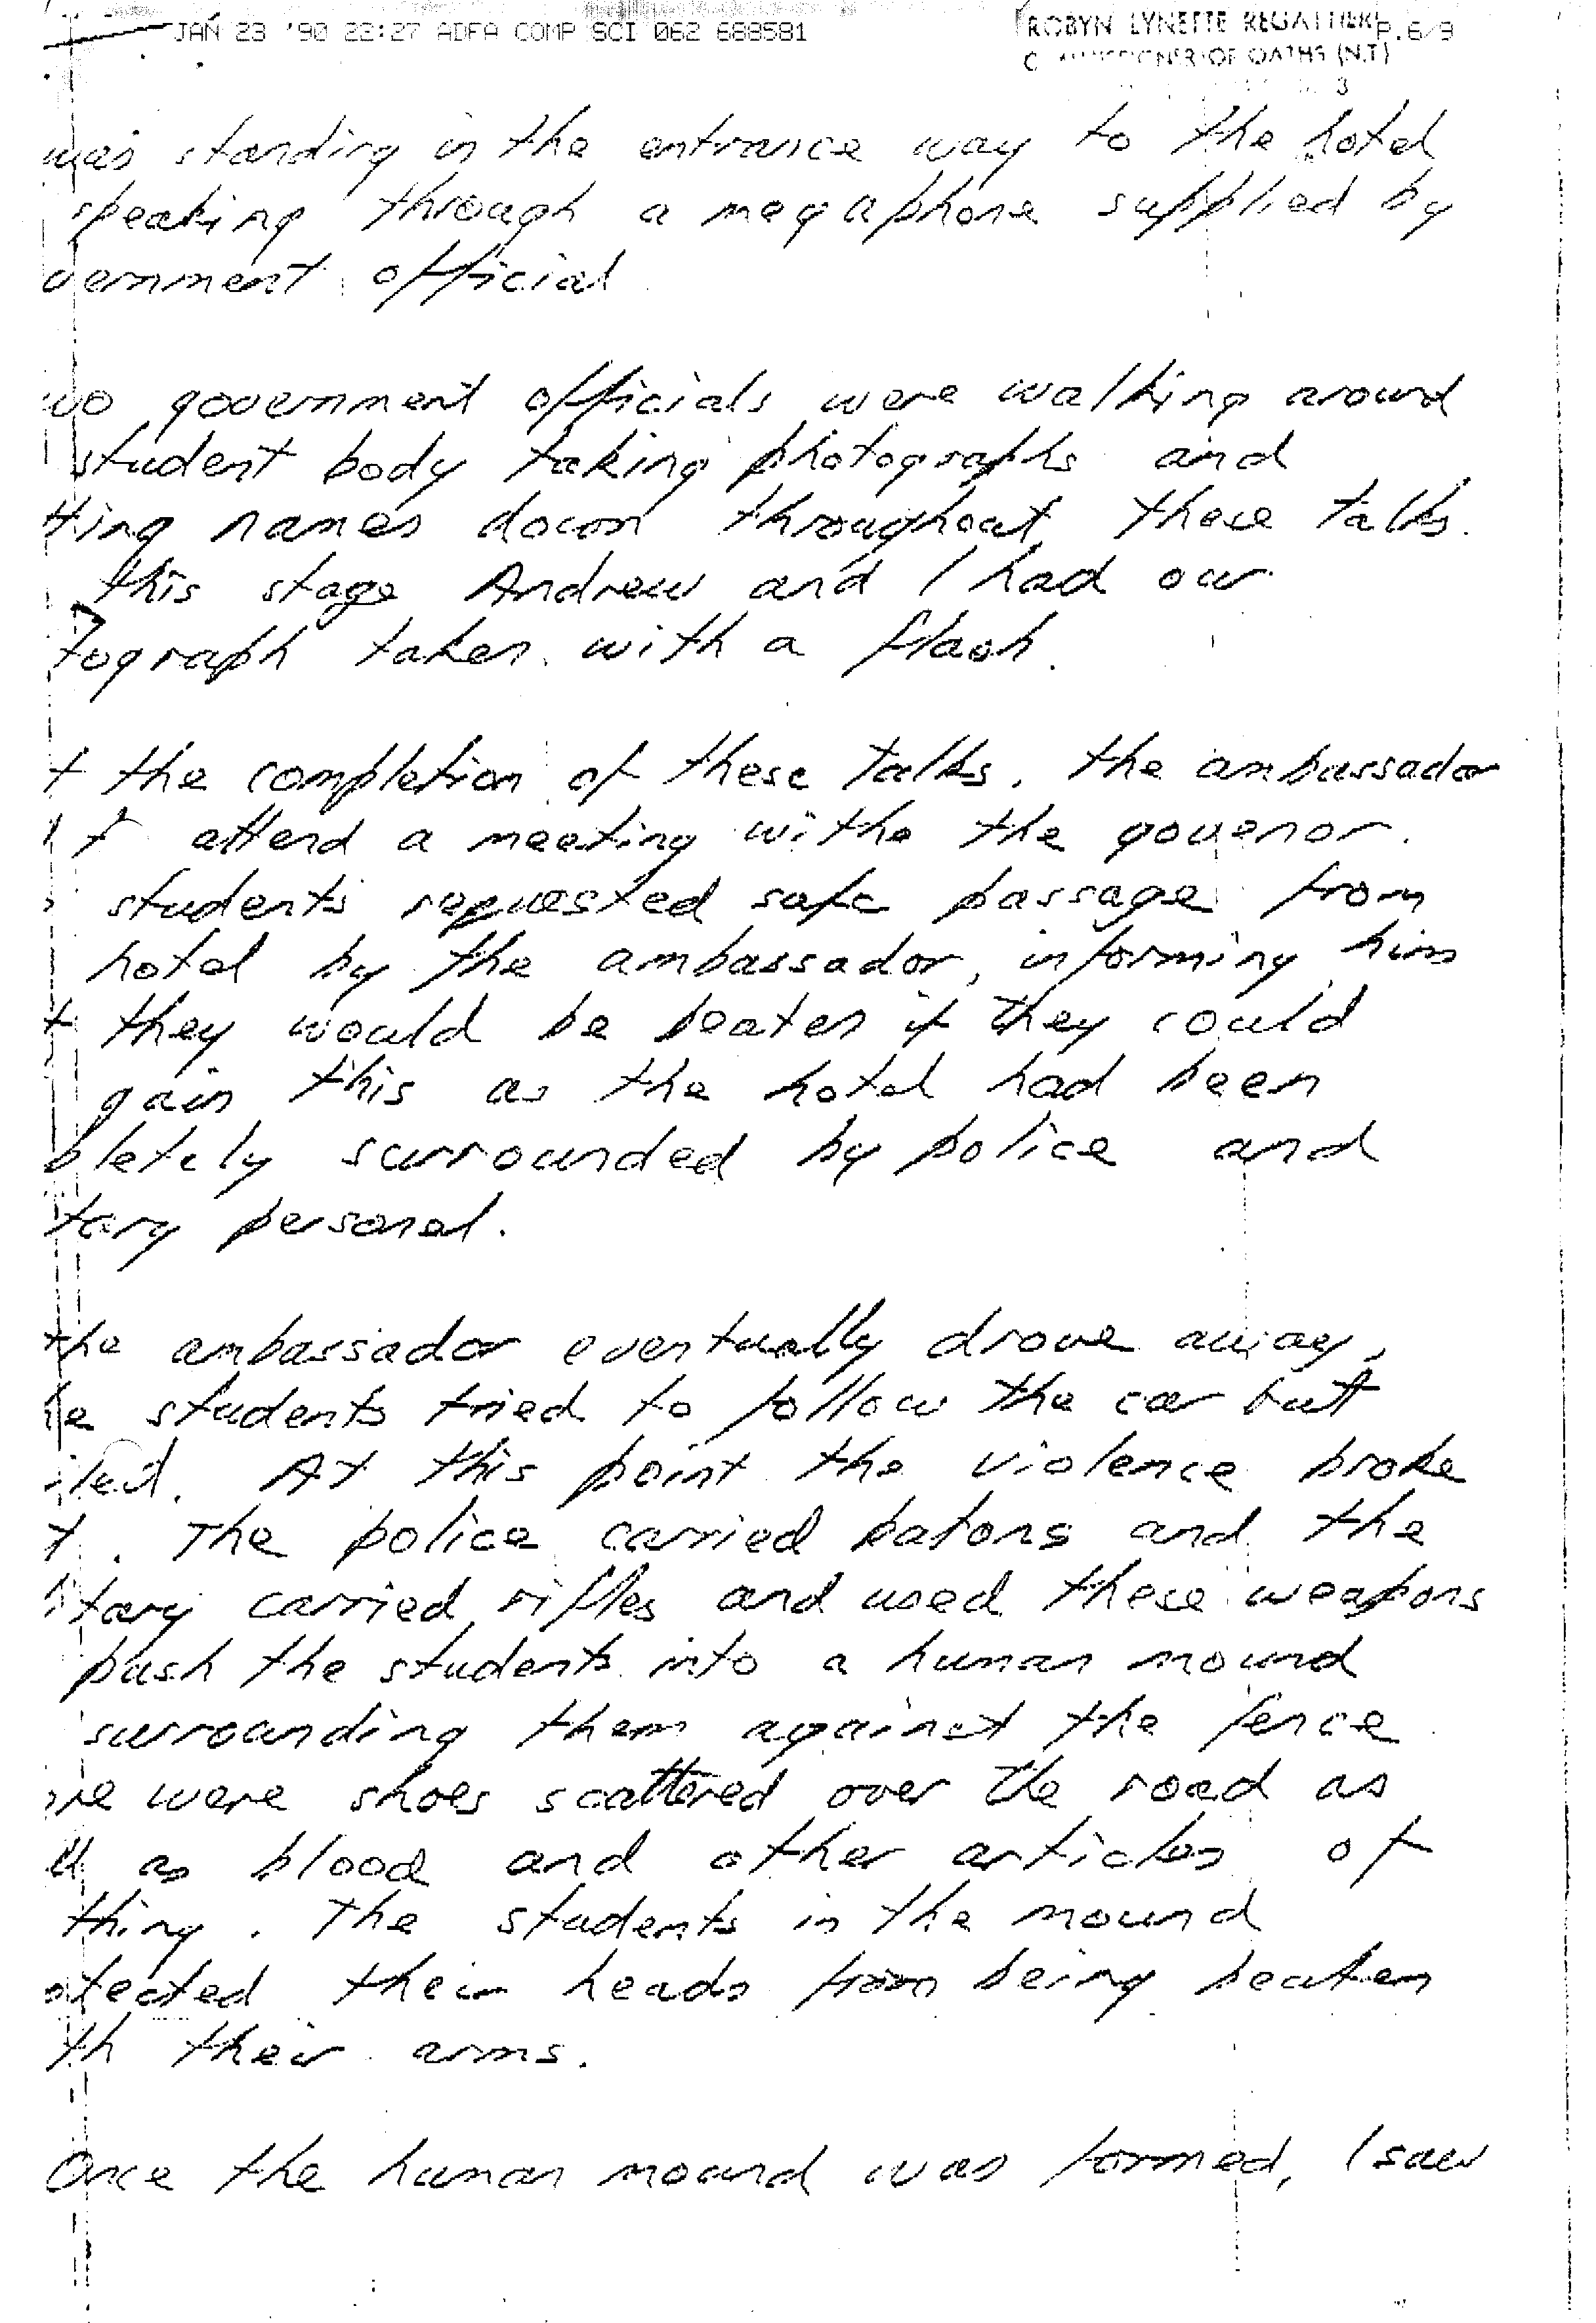 JAN 23 '90 22:27 ADFA COMP SCI 062 688581 P.6/9
ROBYN LYNETTE
OF OATHS (N.T)
3
was standing in the entrance way to the hotel
speaking through a megaphone supplied by
vernment official
wo government officials were walking around
student body taking photographs and
tting names down throughout these talks.
this stage Andrew and I had our
tograph taken with a flash.
t the completion of these talks, the ambassador
attend a meeting withe the govenor.
students requested safe passage from
hotel by the ambassador, informing him
t they would be beaten if they could
gain this as the hotel had been
pletely surrounded by police and
tary personel.
the ambassador eventually drove away,
he students tried to follow the car but
iled. At this point the violence broke
t. The police carried batons and the
itary carried rifles and used these weapons
push the students into a human mound
surrounding them against the fence
ere were shoes scattered over the road as
ll as blood and other articles of
thing. The students in the mound
otected their heads from being beaten
th their arms.
Once the human mound was formed, I saw